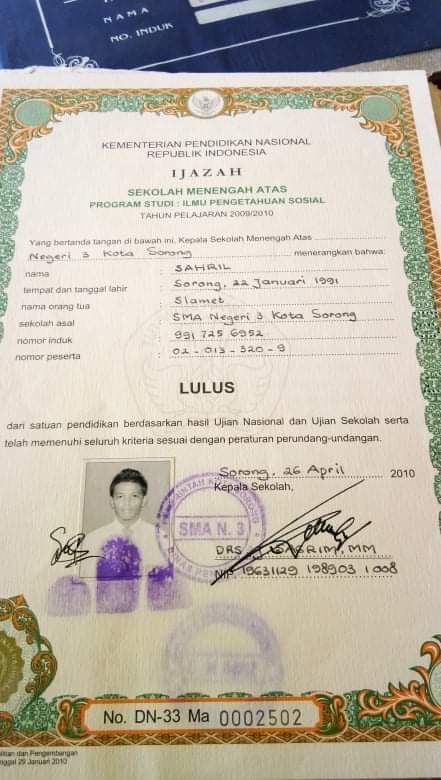 NAMA
NO. INDUK
KEMENTERIAN PENDIDIKAN NASIONAL
REPUBLIK INDONESIA
IJAZAH
SEKOLAH MENENGAH ATAS
PROGRAM STUDI : ILMU PENGETAHUAN SOSIAL
TAHUN PELAJARAN 2009/2010
Yang bertanda tangan di bawah ini, Kepala Sekolah Menengah Atas
Negeri 3 Kota Sorong menerangkan bahwa:
nama : SAHRIL
tempat dan tanggal lahir : Sorong, 22 Januari 1991
nama orang tua : Slamet
sekolah asal : SMA Negeri 3 Kota Sorong
nomor induk : 991 725 6952
nomor peserta : 02-013-320-9
LULUS
dari satuan pendidikan berdasarkan hasil Ujian Nasional dan Ujian Sekolah serta
telah memenuhi seluruh kriteria sesuai dengan peraturan perundang-undangan.
Sorong, 26 April 2010
Kepala Sekolah,
SMA N. 3
DRS MM
NIP 19631129 198903 1 008
No. DN-33 Ma 0002502
dan Pengembangan
29 Januari 2010